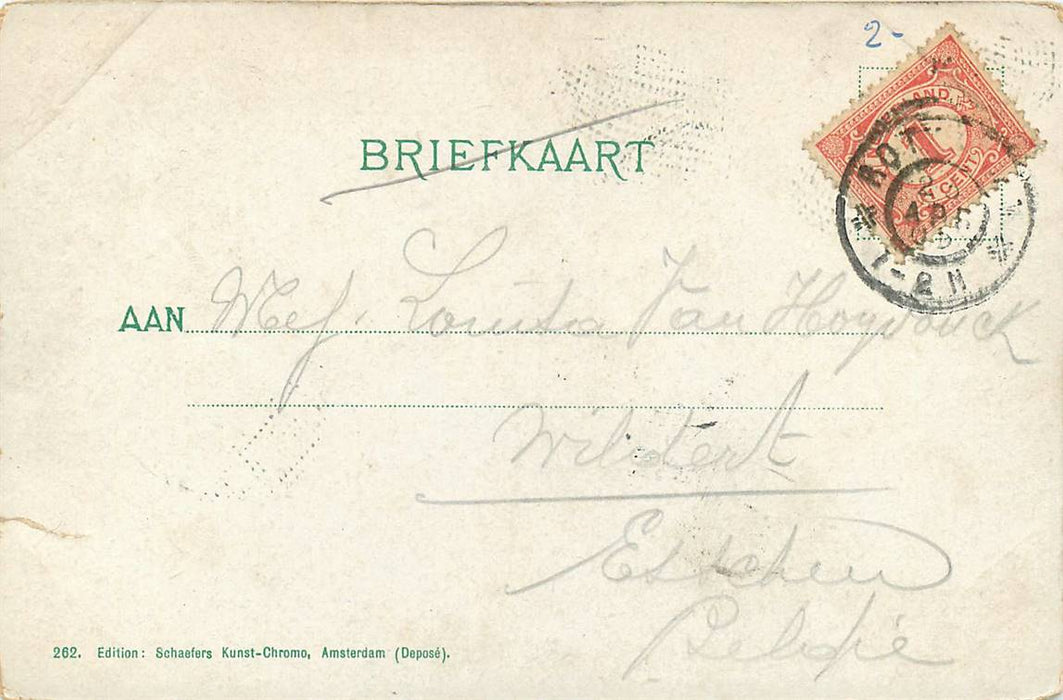 2-
LAND
1
CENT
ROT
1-2 N
BRIEFKAART
AAN Mej. Louisa Van
Wildert
Esschen
Belgie
262. Edition: Schaefers Kunst-Chromo, Amsterdam (Deposé).